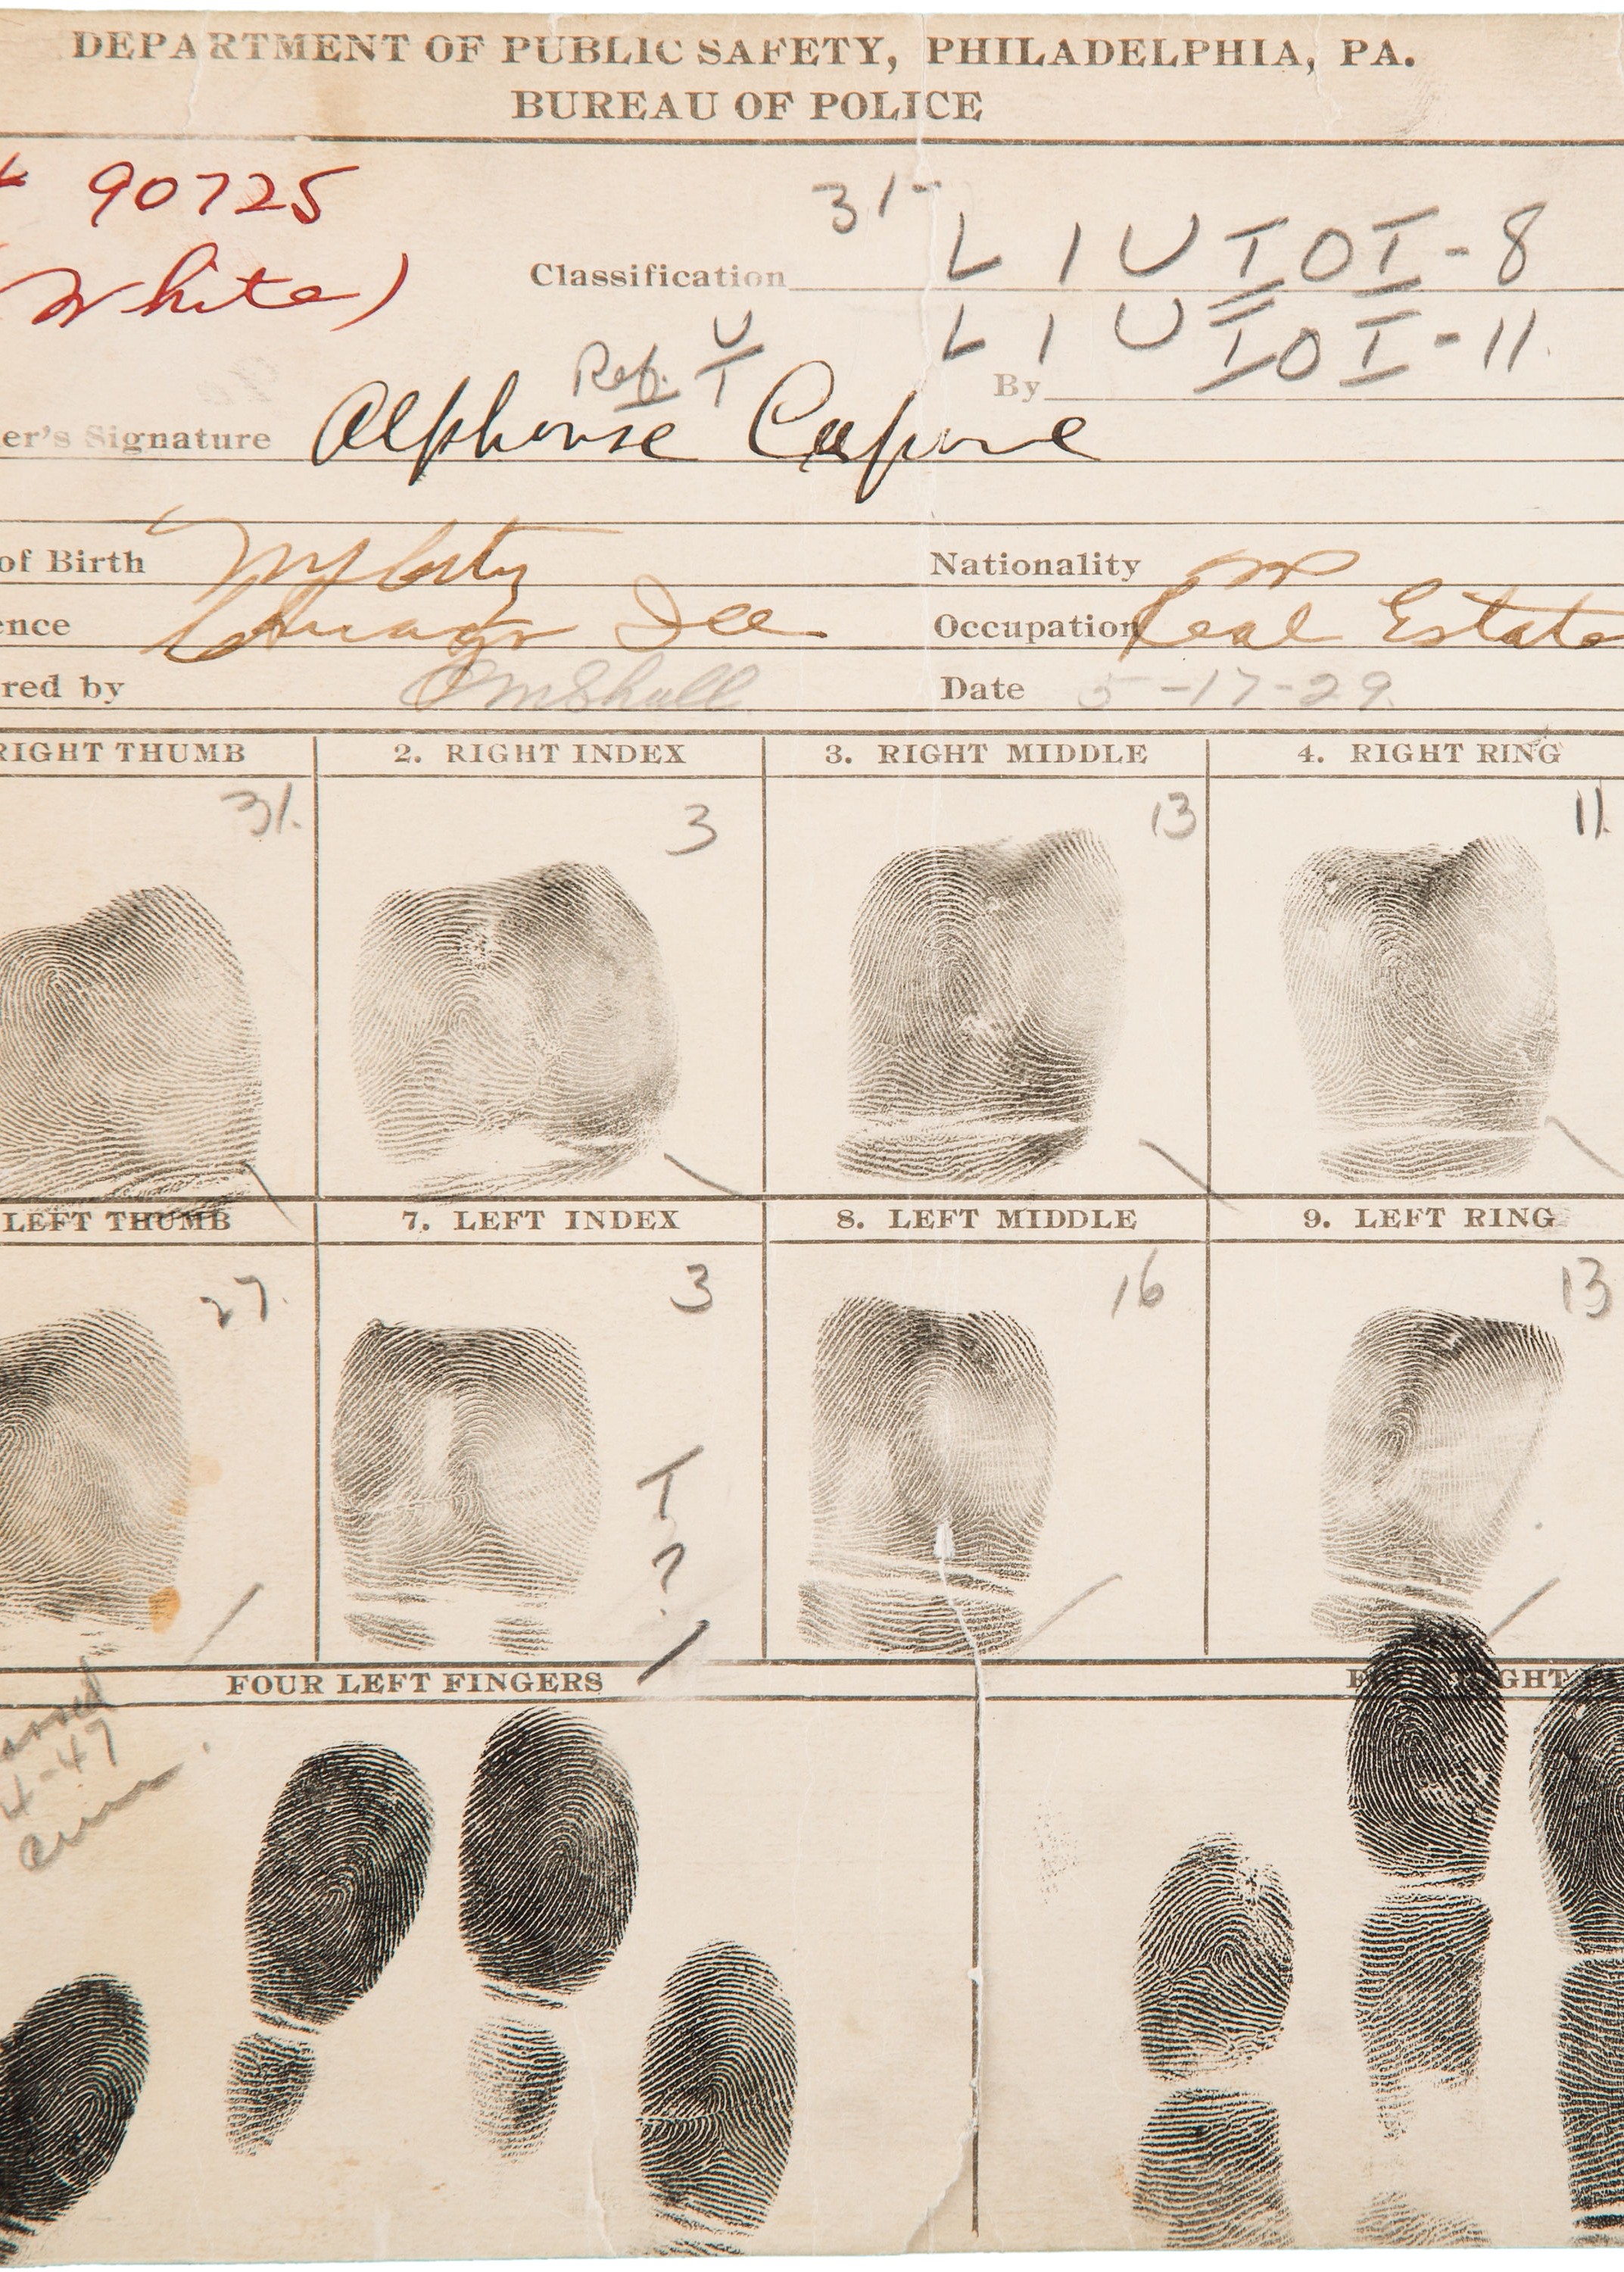 DEPARTMENT OF PUBLIC SAFETY, PHILADELPHIA, PA.
BUREAU OF POLICE
# 90725
(White)
31-
Classification L 1 U I O I - 8
L 1 U I O I - 11.
Ref. U
T
By
er's Signature Alphonse Capone
of Birth Nationality
ence Chicago Ill Occupation Real Estate
red by Date 5-17-29
RIGHT THUMB 2. RIGHT INDEX 3. RIGHT MIDDLE 4. RIGHT RING
31. 3 13 11
LEFT THUMB 7. LEFT INDEX 8. LEFT MIDDLE 9. LEFT RING
27. 3 16 13
T
?
FOUR LEFT FINGERS F GHT
4-47